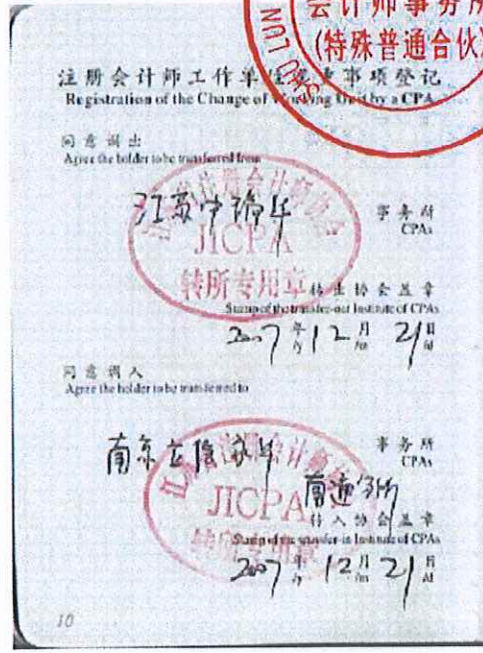 会计师事务所
(特殊普通合伙)
注册会计师工作单位变更事项登记
Registration of the Change of Working Unit by a CPA
同意调出
Agree the holder to be transferred from
江苏中瑞华
事务所
CPAs
JICPA
转所专用章
转出协会盖章
Stamp of the transfer-out Institute of CPAs
2007年12月21日
/y /m /d
同意调入
Agree the holder to be transferred to
南京立信永华
事务所
CPAs
南通分所
JICPA
转所专用章
转入协会盖章
Stamp of the transfer-in Institute of CPAs
2007年12月21日
/y /m /d
10